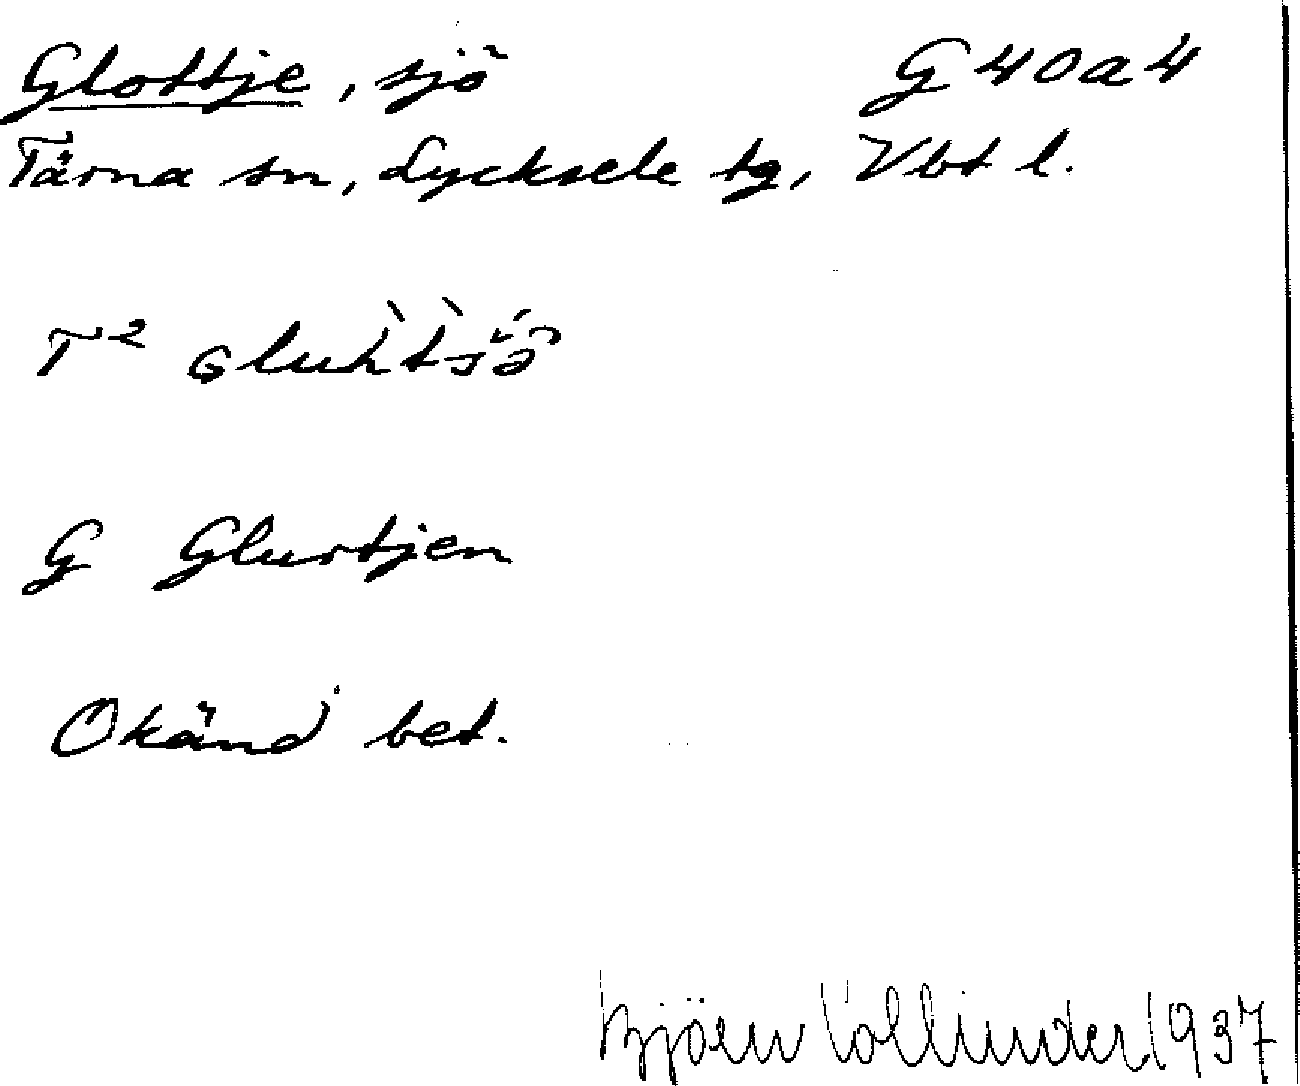 Glottje, sjö G40a4
Tärna sn, Lycksele tg, Vbt l.
T²
G Glurtjen
Okänd bet.
Björn Collinder 1937